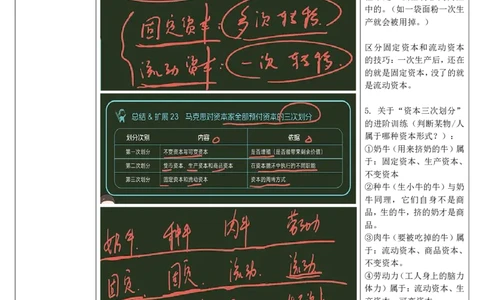 固定资本：多次转移
流动资本：一次转移
总结 & 扩展 23 马克思对资本家全部预付资本的三次划分
划分次别 内容 依据
第一次划分 不变资本与可变资本 是否增殖（是否能带来剩余价值）
第二次划分 货币资本、生产资本和商品资本 在资本循环中执行的不同职能
第三次划分 固定资本和流动资本 资本的周转方式
奶牛 种牛 肉牛 劳动力
固定 固定 流动 流动
中的。（如一袋面粉一次生
产就会被用掉。）
区分固定资本和流动资本
的技巧：一次生产后，还在
的就是固定资本，没了的就
是流动资本。
5. 关于“资本三次划分”
的进阶训练（判断某物/人
属于哪种资本形式？）：
①奶牛（用来挤奶的牛）属
于：固定资本、生产资本、
不变资本
②种牛（生小牛的牛）与奶
牛同理，它们自身不是商
品，生的牛，挤的奶才是商
品。
③肉牛（要被吃掉的牛）属
于：流动资本、商品资本、
不变资本。
④劳动力（工人身上的脑力
体力）属于：流动资本、生